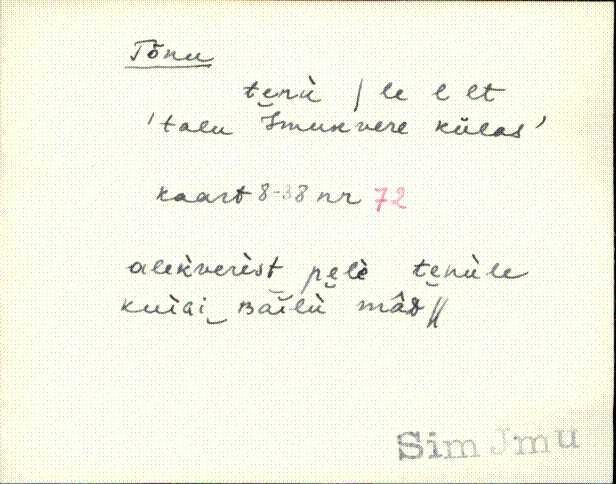 Tõnu
tenù / le l lt
'talu Imukvere külas'
kaart 8-38 nr 72
alekverìst pelè tenùle
kuìai
mâD //
Sim Jmu